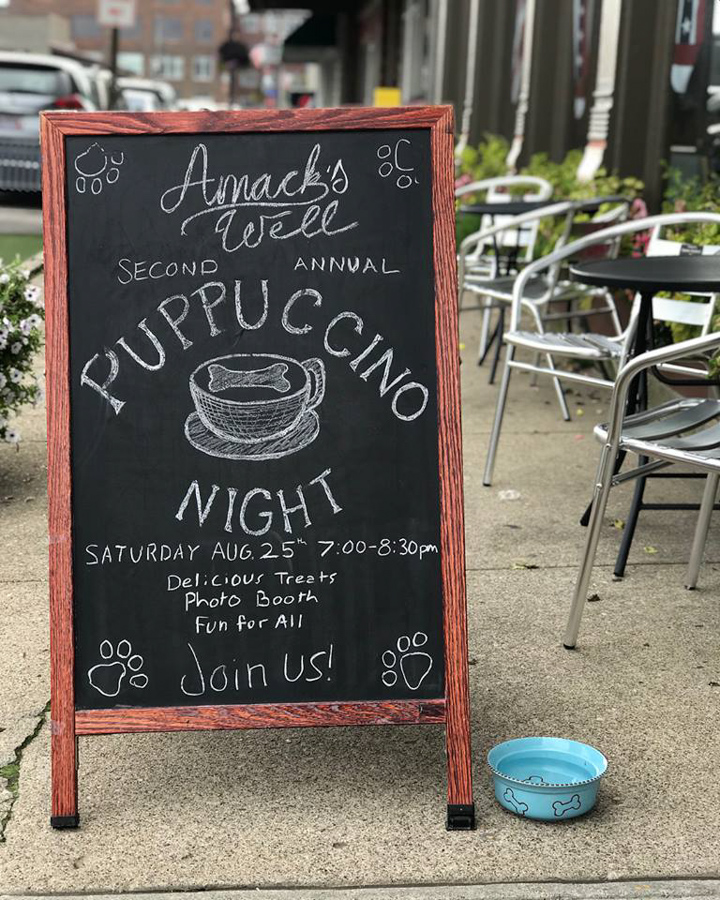 Amack's
Well
SECOND ANNUAL
PUPPUCCINO
NIGHT
SATURDAY AUG. 25th 7:00-8:30pm
Delicious Treats
Photo Booth
Fun for All
Join US!